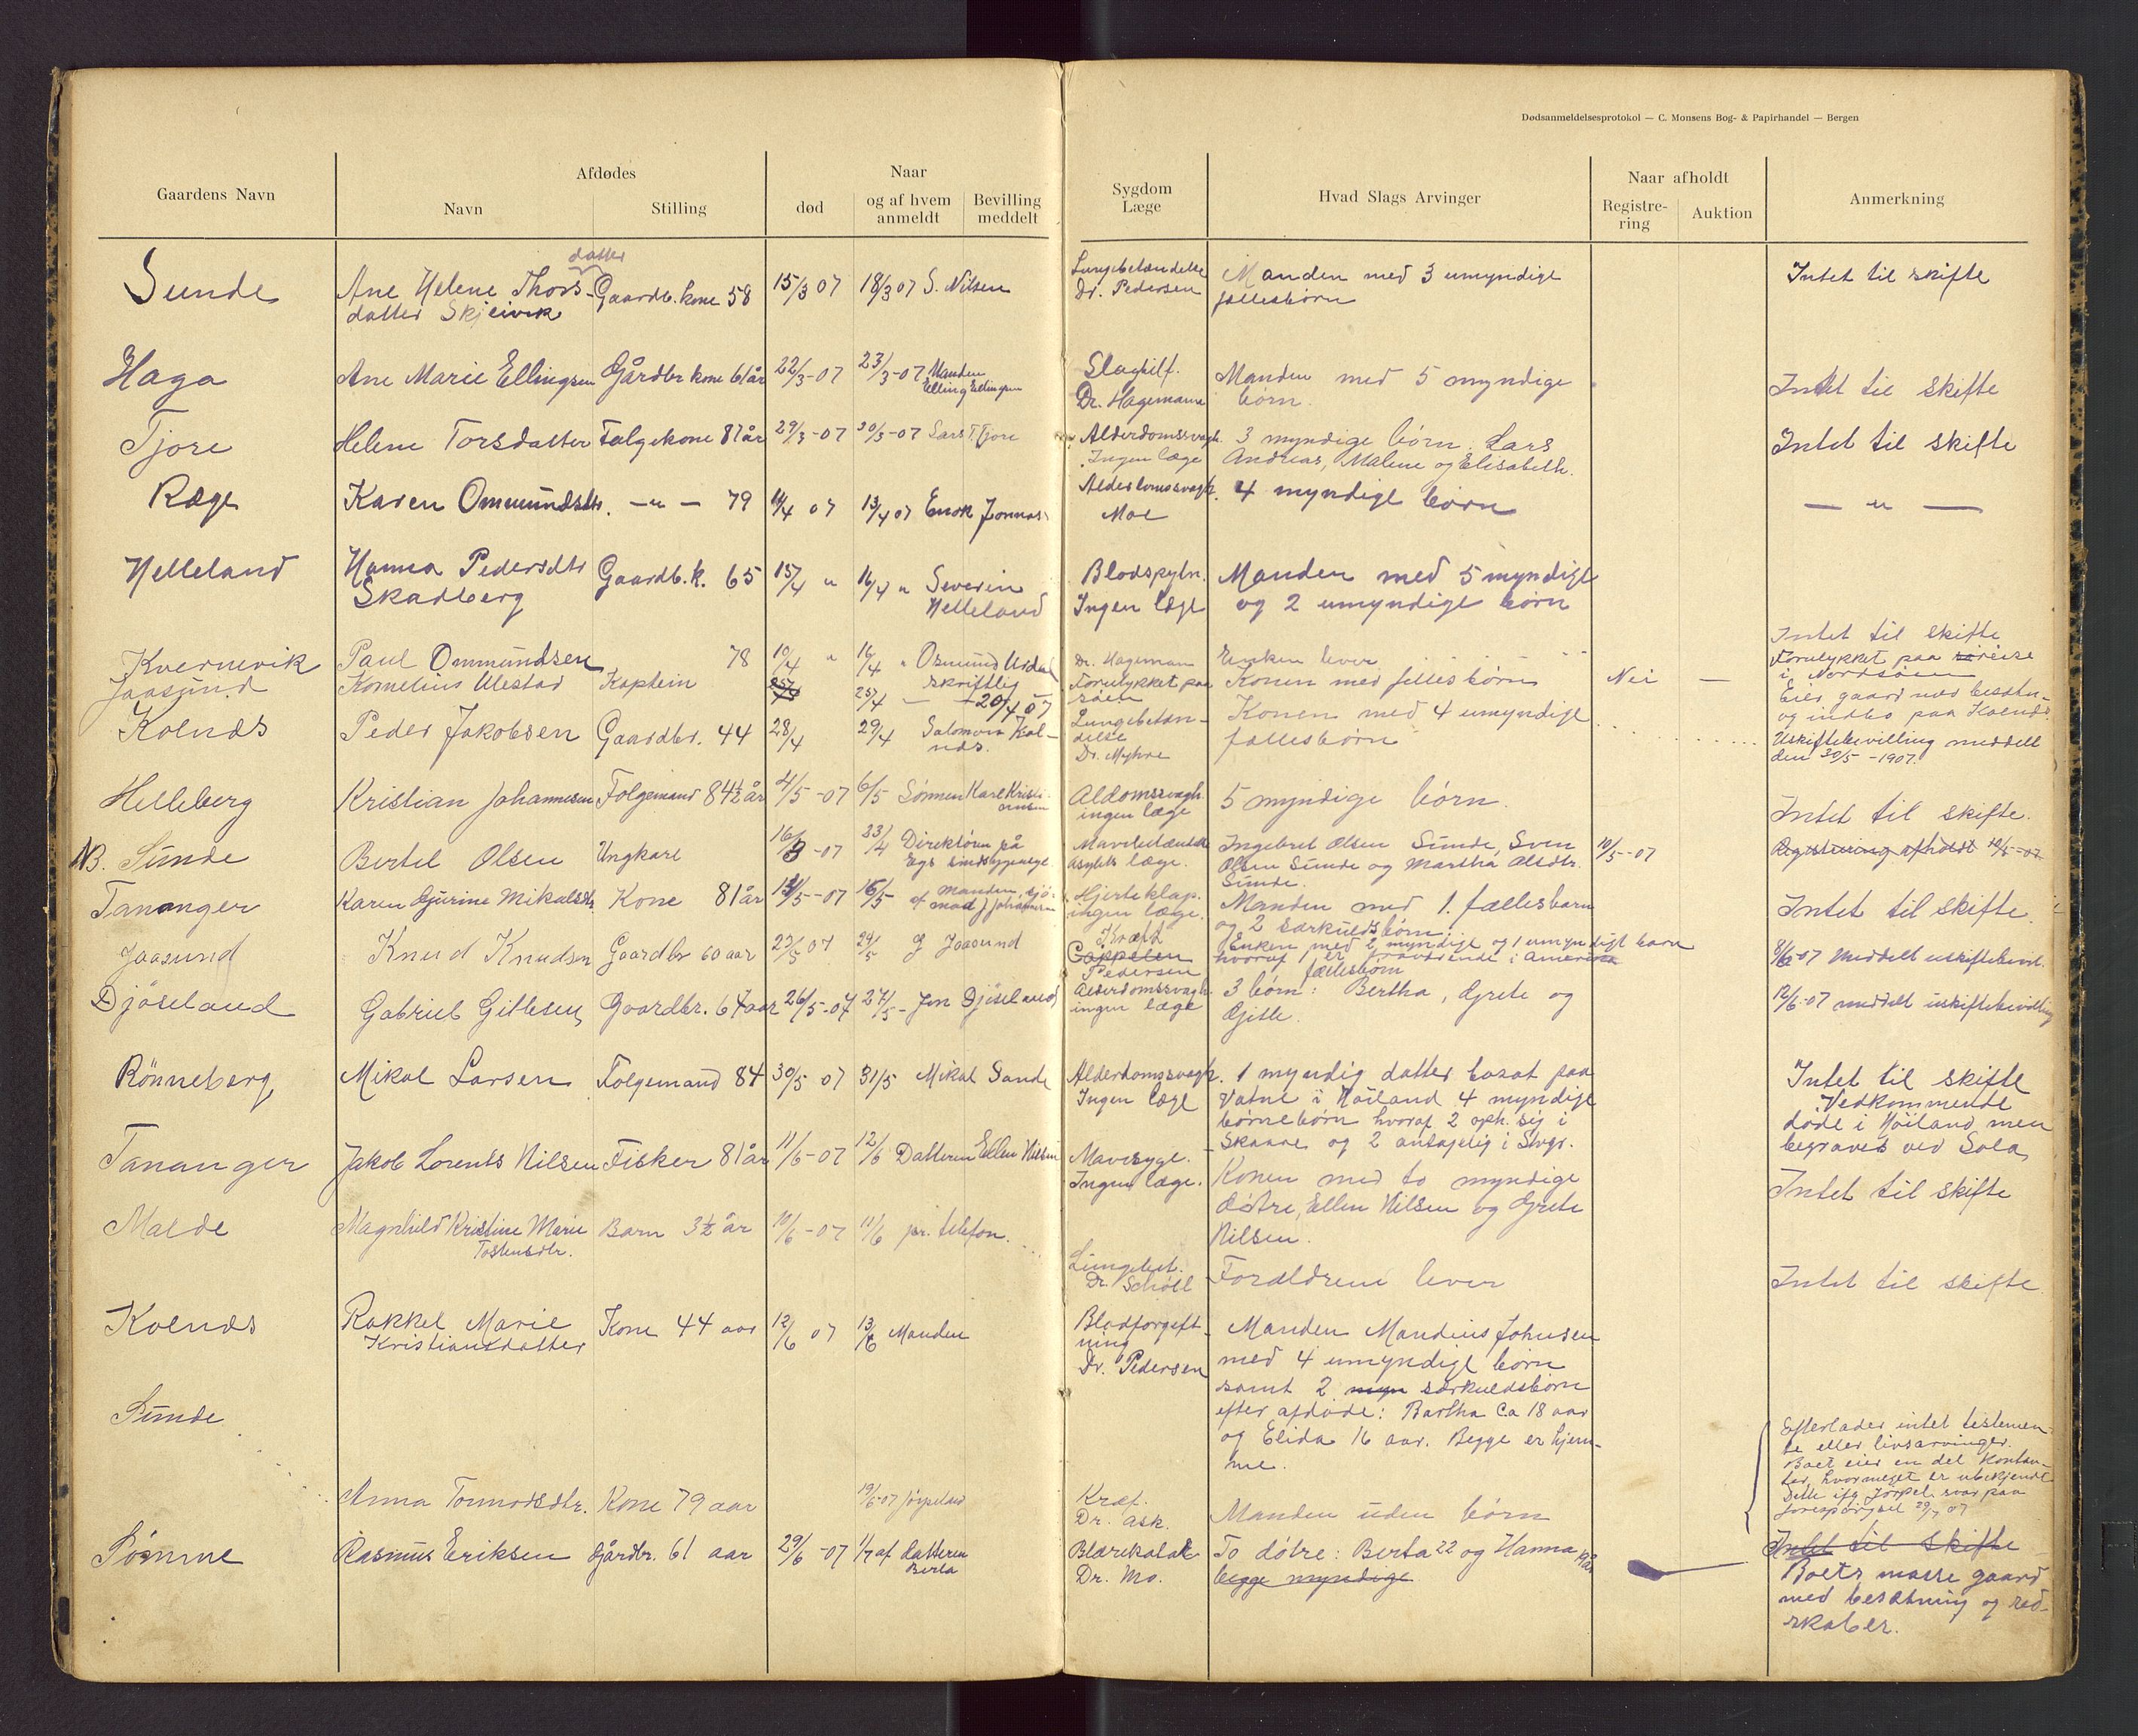 Dødsanmeldelsesprotokol — C. Monsens Bog- & Papirhandel — Bergen
Gaardens Navn
Afdødes
Navn
Stilling
Naar
død
og af hvem anmeldt
Bevilling meddelt
Sygdom
Læge
Hvad Slags Arvinger
Naar afholdt
Registre-
ring
Auktion
Anmerkning
Sunde
datter
Ane Helene Thors-
datter Skjeivik
Gaardb. kone 58
15/3 07
18/3 07 S. Nilsen
Lungebetændelse
Dr. Pedersen
Manden med 3 umyndige
fællesbörn
Intet til skifte
Haga
Ane Marie Ellingsen
Gårdbr kone 61 år
22/3-07
23/3-07 Manden
Elling Ellingsen
Slagtilf.
Dr. Hagemann
Manden med 5 myndige
börn.
Intet til skifte
Tjore
Helene Torsdatter
Følgekone 87 år
29/3-07
30/3-07 Lars T. Tjore
Alderdomssvagh.
Ingen læge
3 myndige börn. Lars
Andreas, Malene og Elisabeth.
Intet til skifte
Ræge
Karen Ommundsdtr.
— " — 79
11/4 07
13/4 07 Enok Jonnas
Alderdomssvagh.
Moe
4 myndige börn
— " —
Helleland
Hanna Pedersdtr
Skadberg
Gaardb. k. 65
15/4 "
16/4 " Severin
Helleland
Blodspytn.
Ingen læge
Manden med 5 myndige
og 2 umyndige börn
Intet til skifte
Kvernevik
Paul Ommundsen
78
10/4 "
16/4 " Osmund
Dr. Hageman
Enken lever
Jaasund
Kornelius Ulestad
Kaptein
25/4
25/4 skriftlig
— 20/4 07
Forulykket paa
søen
Konen med fællesbörn
Nei —
Forulykket paa reise
i Nordsöen
Kolnds
Peder Jakobsen
Gaardbr. 44
28/4
29/4 Salomon Kol-
nds.
Lungebetæn-
delse
Dr. Myhre
Konen med 4 umyndige
fællesbörn
Eier gaard med besætn-
og indbo paa Kolnds.
Uskiftebevilling meddelt
den 30/5 -1907.
Helleberg
Kristian Johannesen
Folgemand 84½ år
4/5-07
6/5 Sønnen Karl Kristi-
ansen
Aldomssvagh.
ingen læge
5 myndige börn.
Intet til skifte.
NB. Sunde
Bertel Olsen
Ungkarl
16/3-07
23/4 Direktören på
Egs sindssygeasyl
Mavebetændelse
Asylets læge.
Ingebret Olsen Sunde, Sven
Olsen Sunde og Martha Olsdtr.
Sunde.
10/5-07
Registrering afholdt 10/5-07
Tananger
Karen Gurine Mikalsdtr.
Kone 81 år
15/5-07
16/5 af manden, sjö-
mand J. Johannesen
Hjerteklap.
ingen læge.
Manden med 1. fællesbarn
og 2 særkuldsbörn.
Intet til skifte.
Jaasund
Knud Knudsen
Gaardbr 60 aar
23/5 07
24/5 G Jaasund
Kræft
Cappelen
Pedersen
Enken med 2 myndige og 1 umyndigt barn
hvoraf 1 er fraværende i Amerika
fællesbörn
8/6-07 Meddelt uskiftebevil.
Djöseland
Gabriel Gitlesen
Gaardbr. 67 aar
26/5-07
27/5- Jon Djöseland
Alderdomssvagh.
ingen læge
3 börn: Bertha, Grete og
Gitle.
12/6-07 meddelt uskiftebevilling
Rönneberg
Mikal Larsen
Folgemand 84
30/5 07
31/5 Mikal Sande
Alderdomssvagh.
Ingen læge
1 myndig datter bosat paa
Vatne i Höiland 4 myndige
börnebörn hvoraf 2 oph. sig i
Skaare og 2 antagelig i Svgr.
Intet til skifte
Vedkommende
döde i Höiland men
begraves ved Sola
Tananger
Jakob Lorents Nilsen
Fisker 81 år
11/6-07
12/6 Datteren Ellen Nilsen
Mavesyge.
Ingen læge.
Konen med to myndige
dötre, Ellen Nilsen og Grete
Nilsen.
Intet til skifte
Malde
Magnhild Kristine Marie
Tostensdtr.
Barn 3½ år
10/6-07
11/6 pr. telefon.
Lungebet.
Dr. Schöll
Forældrene lever
Intet til skifte
Kolnds
Rakkel Marie
Kristiansdatter
Kone 44 aar
12/6 07
13/6 Manden
Blodforgift-
ning
Dr. Pedersen
Manden Mandius Johnsen
med 4 umyndige börn
samt 2 myn særkuldsbörn
efter afdöde: Bartha Ca 18 aar
og Elida 16 aar. Begge er hjem-
me.
Sunde
Anna Tormodsdtr.
Kone 79 aar
19/6-07 Jörpeland
Kræf.
Dr. Ask.
Manden uden börn
Efterlader intet testemen-
te eller livsarvinger.
Boet eier en del kontan-
ter, hvormeget er ubekjendt
Dette iflg Jörpel. svar paa
forespörgsel 29/7 07
Sömme
Rasmus Eriksen
Gårdbr. 61 aar
29/6-07
1/7 af datteren
Berta
Blærekatak
Dr. Mo.
To dötre: Berta 22 og Hanna
begge myndige
Intet til skifte
Boets masse gaard
med besætning og red-
skaber.